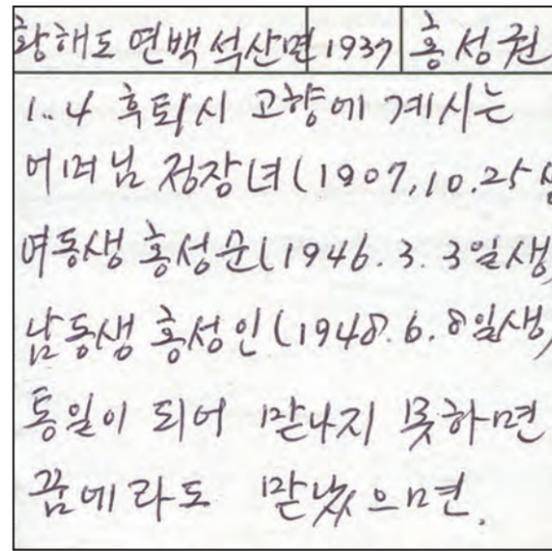 황해도 연백 석산면 1937 홍성권
1.4 후퇴시 고향에 계시는
어머님 정장녀(1907.10.25생
여동생 홍성순(1946.3.3일생)
남동생 홍성인(1948.6.8일생)
통일이 되어 맏나지 못하면
꿈에라도 맏났으면.